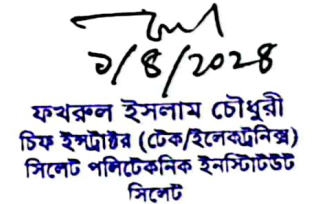 ১/৪/২০২৪
ফখরুল ইসলাম চৌধুরী
চিফ ইন্সট্রাক্টর (টেক/ইলেকট্রনিক্স)
সিলেট পলিটেকনিক ইনস্টিটিউট
সিলেট